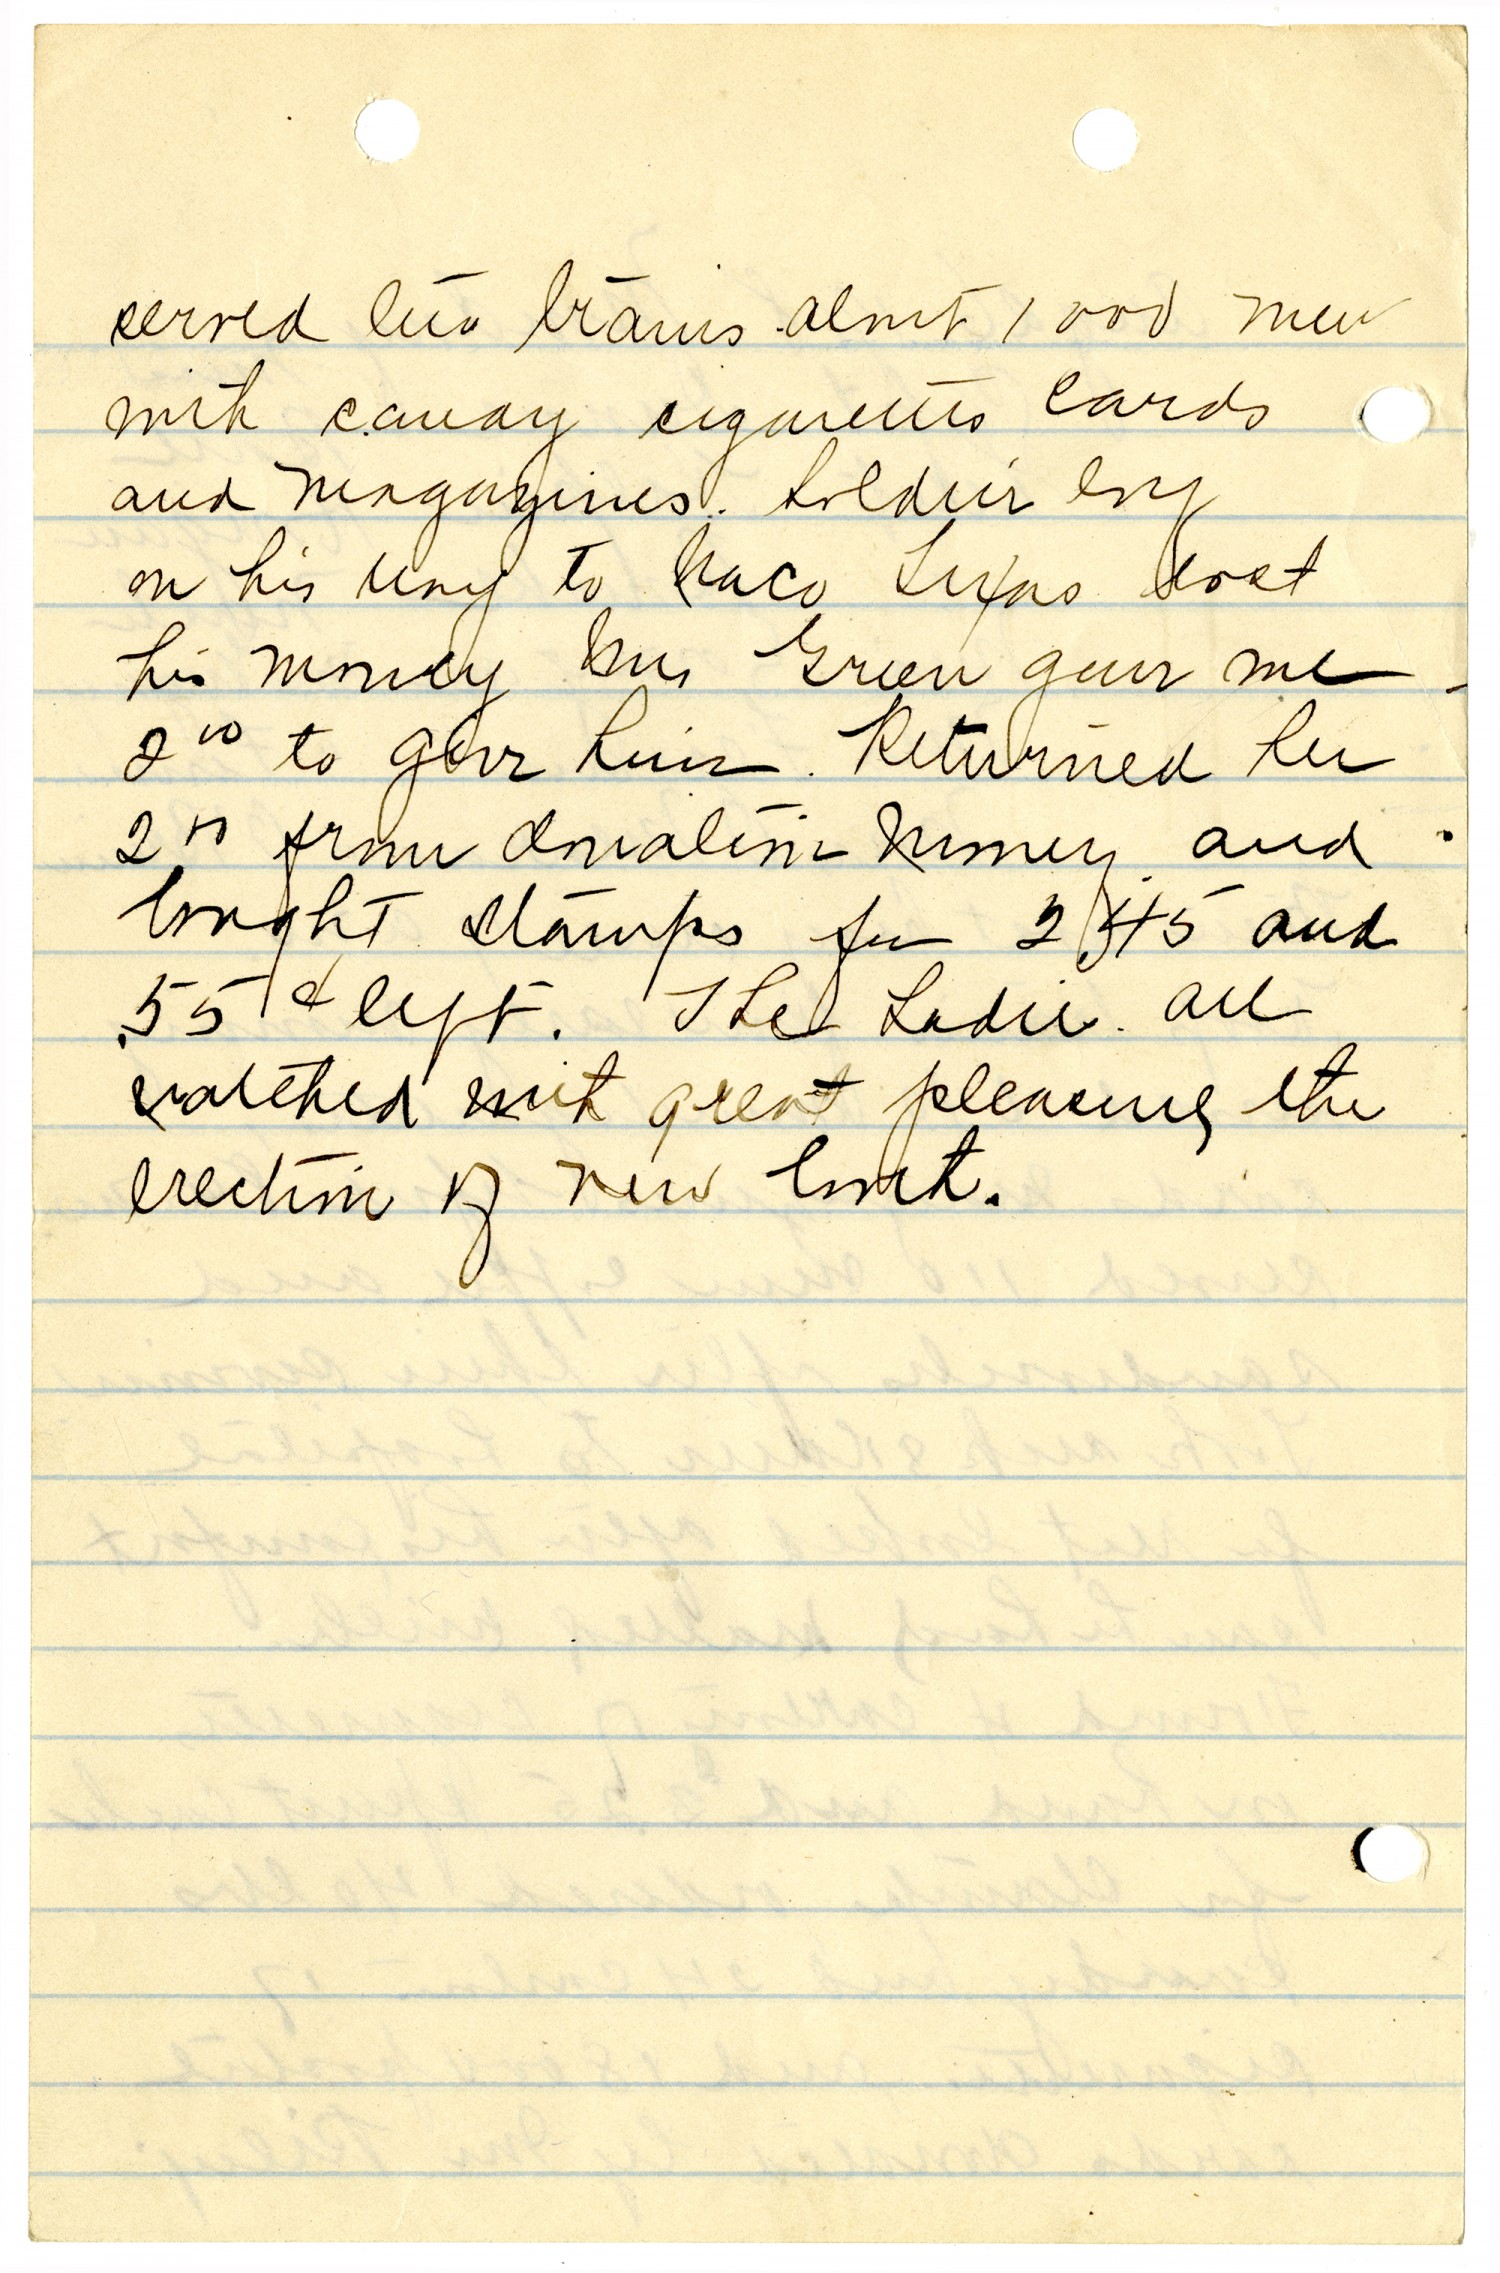 served two trains almost 1000 men
with candy cigarettes cards
and magazines. Soldier boy
on his way to Waco Texas lost
his money Mrs Green gave me
2 00 to give him. Returned her
2 00 from donation money and
bought stamps for 2.45 and
.55 ¢ left. The Ladie all
watched with great pleasure, the
erection of new booth.